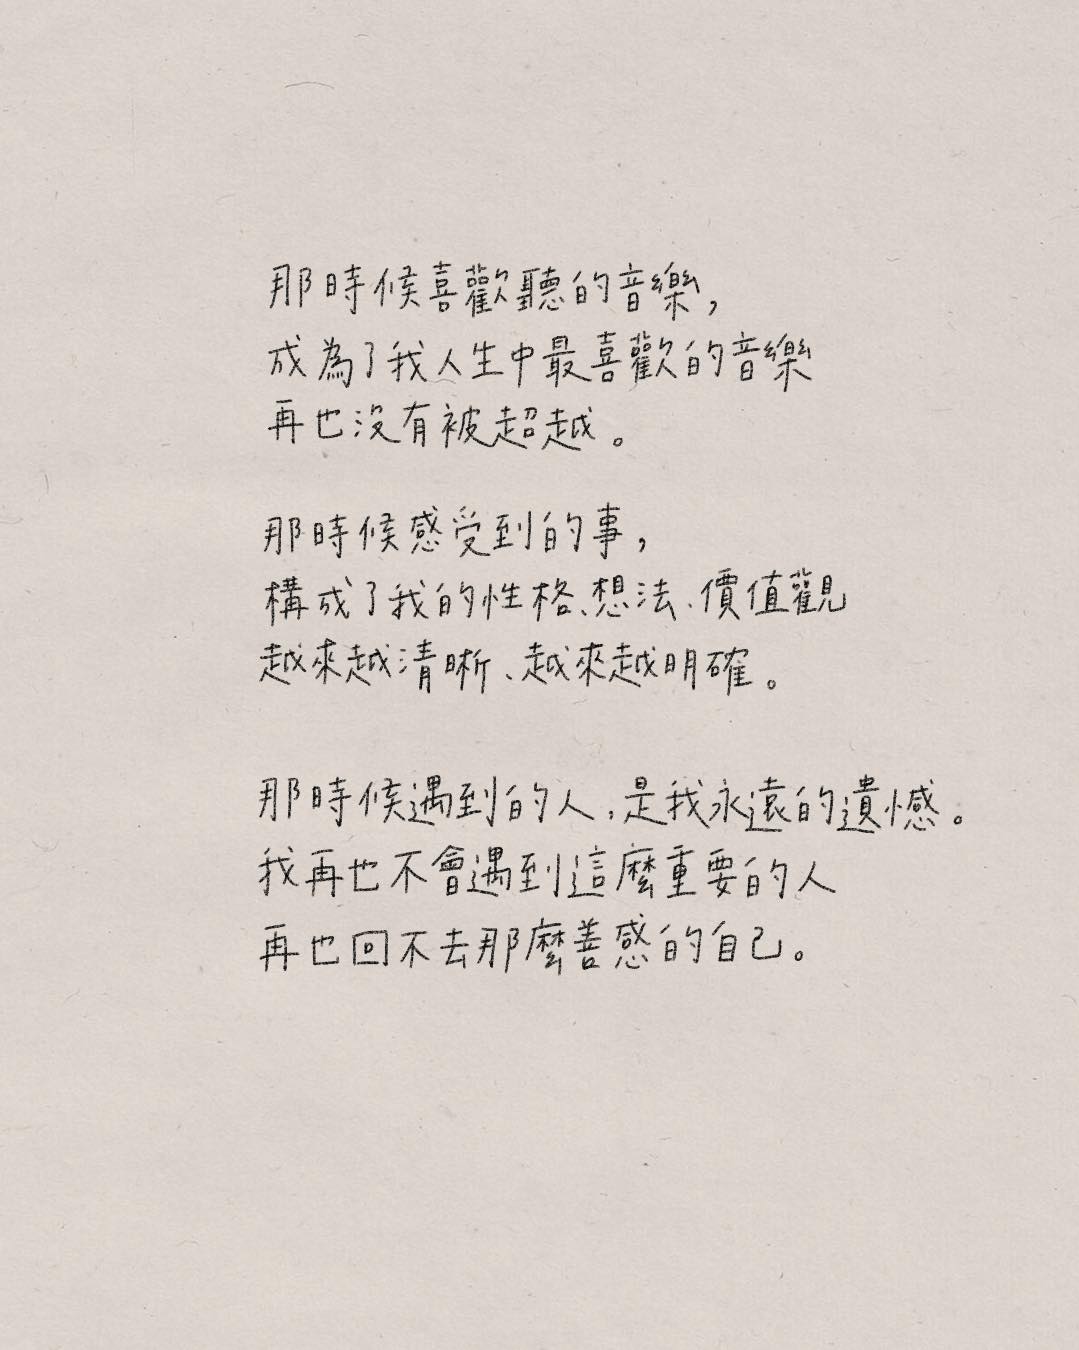 那時候喜歡聽的音樂,
成為了我人生中最喜歡的音樂
再也沒有被超越。
那時候感受到的事,
構成了我的性格、想法、價值觀
越來越清晰、越來越明確。
那時候遇到的人,是我永遠的遺憾。
我再也不會遇到這麼重要的人
再也回不去那麼善感的自己。